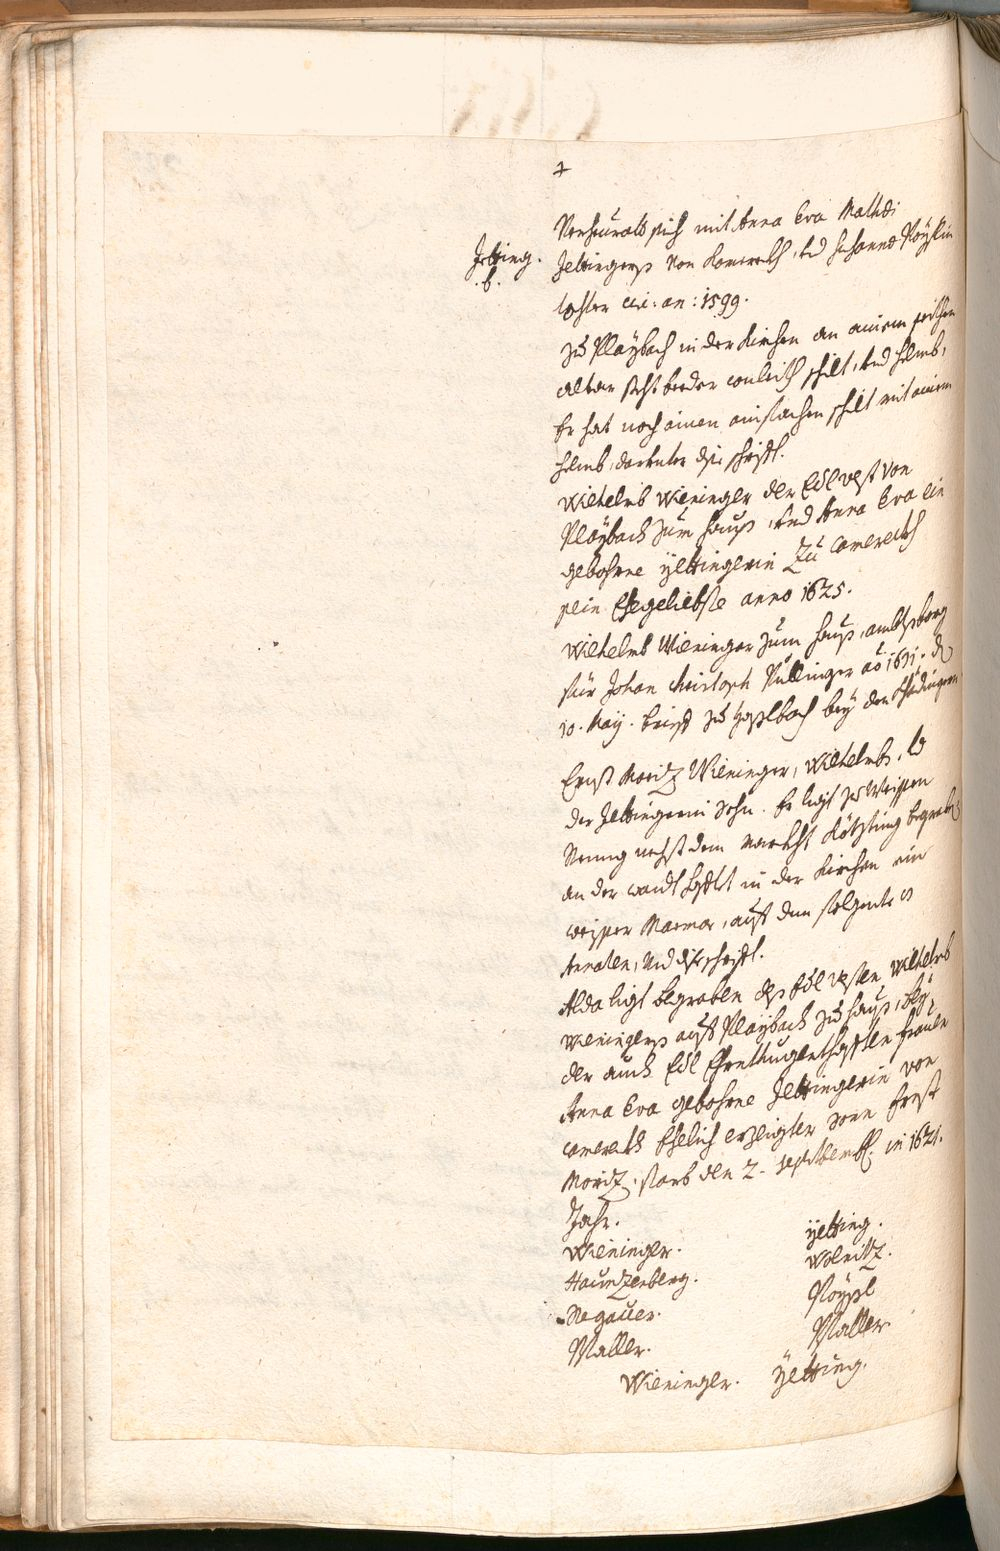 Verheürath sich mit Anna Eva Mathei
Jetting. b.
Jettingerß von Camereckh, und Susanna Pöyslin
tochter cir: an: 1599.
Zu Playbach in der Kirchen an ainem seithen
altar steht beeder schilt, und Helmb,
Er hat noch ainen ainfachen schilt mit ainem
Helmb, darunter die schrifft.
Wilhelmb Wieninger der Edl vest von
Playbach zum Hauß, und Anna Eva ein
gebohrne yettingerin Zu Camereckh
sein Ehegeliebste anno 1625.
Wilhelmb Wieninger zum Hauß, ambts
für Johan Christoph Pullinger ao 1631. d
10. May. brieff zu bey den
Ernst Moritz Wieninger, Wilhelmbs, und
der Jettingerin Sohn. Er ligt zu Weissen
Regung nechst dem marckht Kötzting begraben
an der wandt in der Kirchen ein
weisser Marmor, auf dem folgente
Annaten, und schrifft.
Alda ligt begraben deß Edl vesten Wilhelmb
Wieningerß auf Playbach zu Hauß, bey
der auch Edl Ehrntugenthafften frauen
Anna Eva gebohrne Jettingerin von
camereckh Ehelich erzeigter Sonn Ernst
Moritz. starb den 2. september. in 1621.
Jahr.
Wieninger. yetting.
Haunzenberg. Wolnitz.
Negauer. Pöysl
Maller. Maller.
Wieninger. Yetting.